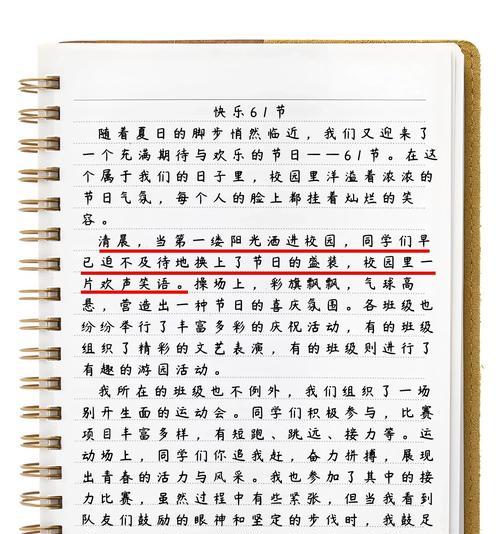 快乐61节
随着夏日的脚步悄然临近，我们又迎来了
一个充满期待与欢乐的节日——61节。在这
个属于我们的日子里，校园里洋溢着浓浓的
节日气氛，每个人的脸上都挂着灿烂的笑
容。
清晨，当第一缕阳光洒进校园，同学们早
已迫不及待地换上了节日的盛装，校园里一
片欢声笑语。操场上，彩旗飘飘，气球高
悬，营造出一种节日的喜庆氛围。各班级也
纷纷举行了丰富多彩的庆祝活动，有的班级
组织了精彩的文艺表演，有的班级则进行了
有趣的游园活动。
我所在的班级也不例外，我们组织了一场
别开生面的运动会。同学们积极参与，比赛
项目丰富多样，有短跑、跳远、接力等。运
动场上，同学们你追我赶，奋力拼搏，展现
出青春的活力与风采。我也参加了其中的接
力比赛，虽然过程中有些紧张，但当我看到
队友们鼓励的眼神和坚定的步伐时，我鼓足